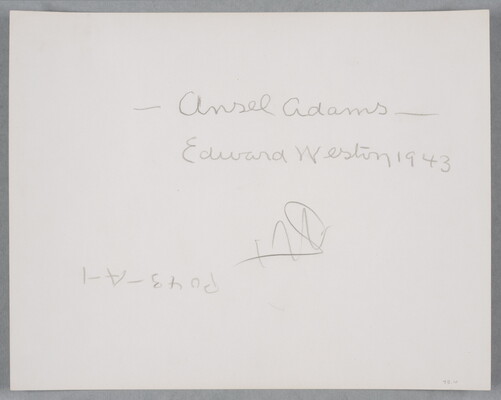 — Ansel Adams —
Edward Weston 1943
PO43-A-1